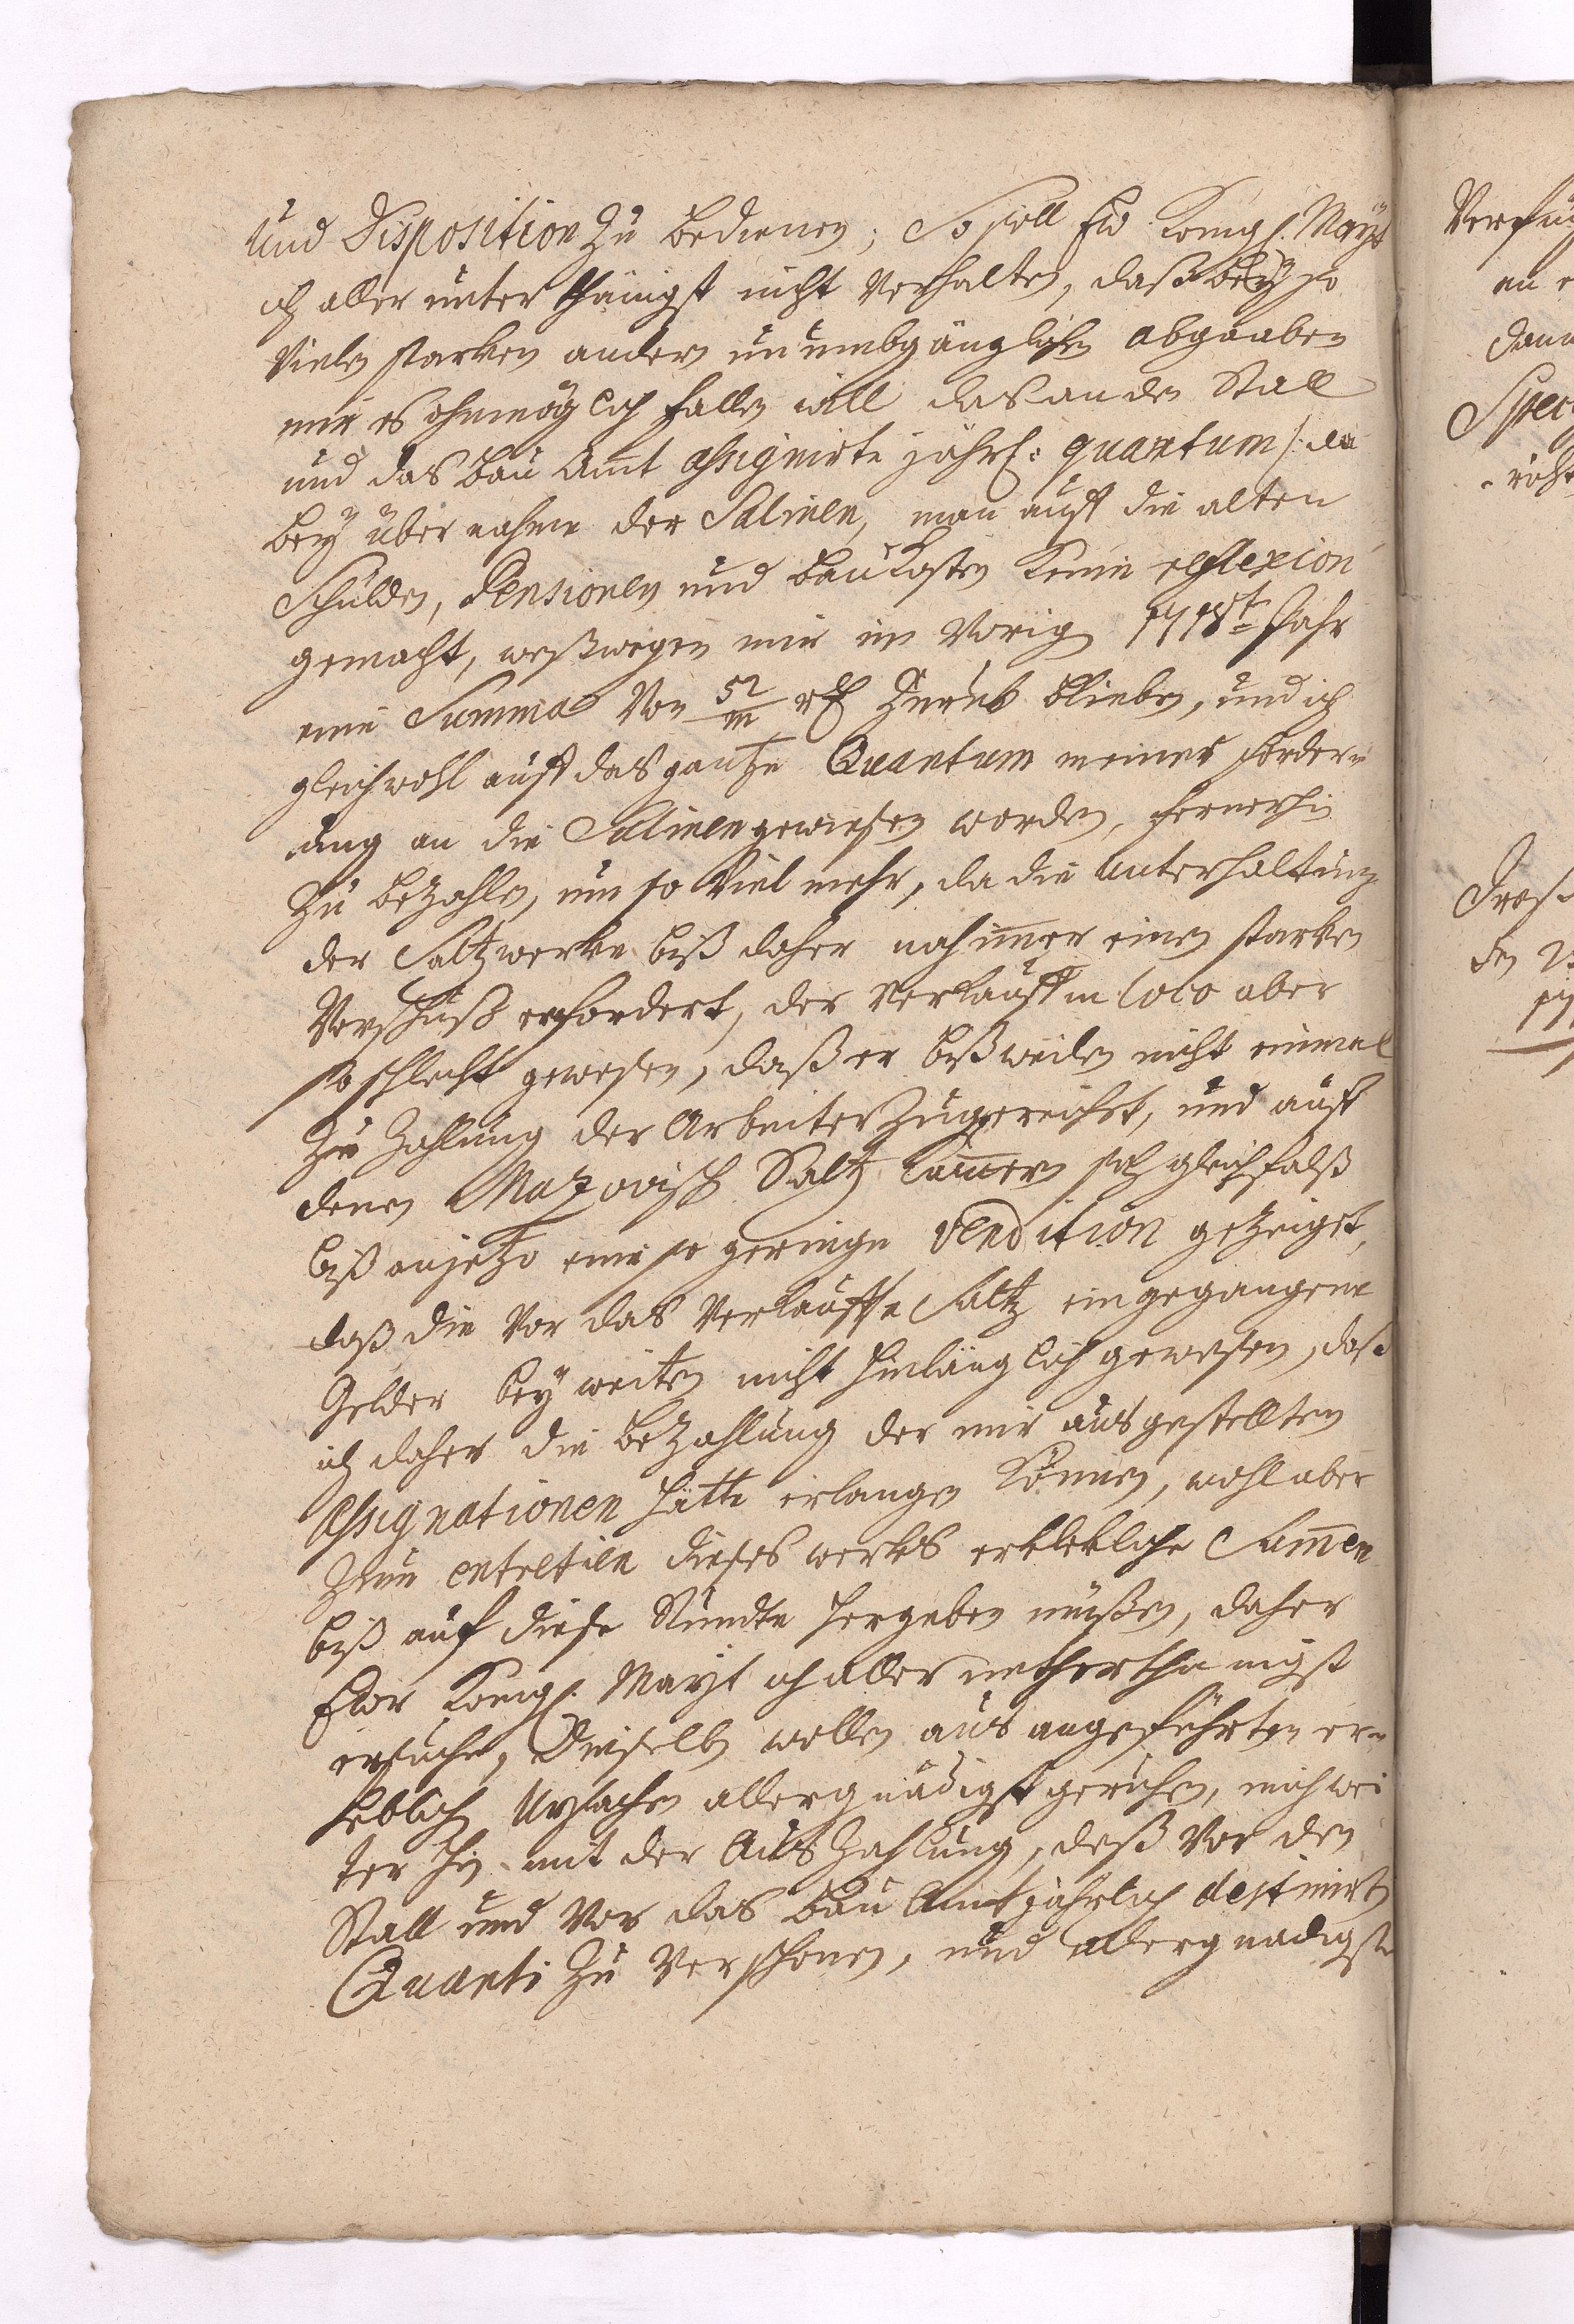 und Disposition zu bedienen; So soll Ew. Königl. Mayt
ich aller unterthänigst nicht verhalten, daß bey so
vielen starken andern unumbgänglichen abgaaben
mir es ohnmöglich fallen will das an den Stall
und das Bau Amt assignirte jährl: quantum /: da
bey übernahme der Salinen, man auff die alten
Schulden, Pensionen und Baukosten keine reflexion
gemacht, weßwegen mir im vorig 1718t Jahr
eine Summa von 52/m rf zurük blieben, und ich
gleichwohl auff das gantze Quantum meiner forder-
ung an die Salinen gewiesen worden, fernerhin
zu bezahlen, um so viel mehr, da die unterhaltung
der Saltzwerke biß daher noch immer einen starken
Vorschuß erfordert, der verkauff in loco aber
so schlecht gewesen, daß er bißweilen nicht einmal
zu Zahlung der Arbeiter zugereichet, und auff
denen Mazovisch Saltz Cammern sich gleichfalß
biß anjetzo eine so geringe vendition gezeiget,
daß die vor das verkauffte Saltz eingegangene
Gelder bey weiten nicht hinlänglich gewesen, daß
ich daher die bezahlung der mir ausgestellten
assignationen hätte erlangen können, wohl aber
zum dieses werks erklekliche Summen
biß auf diese Stunde hergeben müßen, daher
Ewr Königl. Mayt ich aller unterthänigst
ersuche, Dieselben wollen aus angeführten er-
heblich Ursachen allergnädigst geruhen, mich wei
ter hin mit der Auszahlung, deß vor den
Stall und vor das Bau Amt jährlich destinirten
Quanti zu verschonen, und allergnädigste
Verfüg
an
dann
Spec